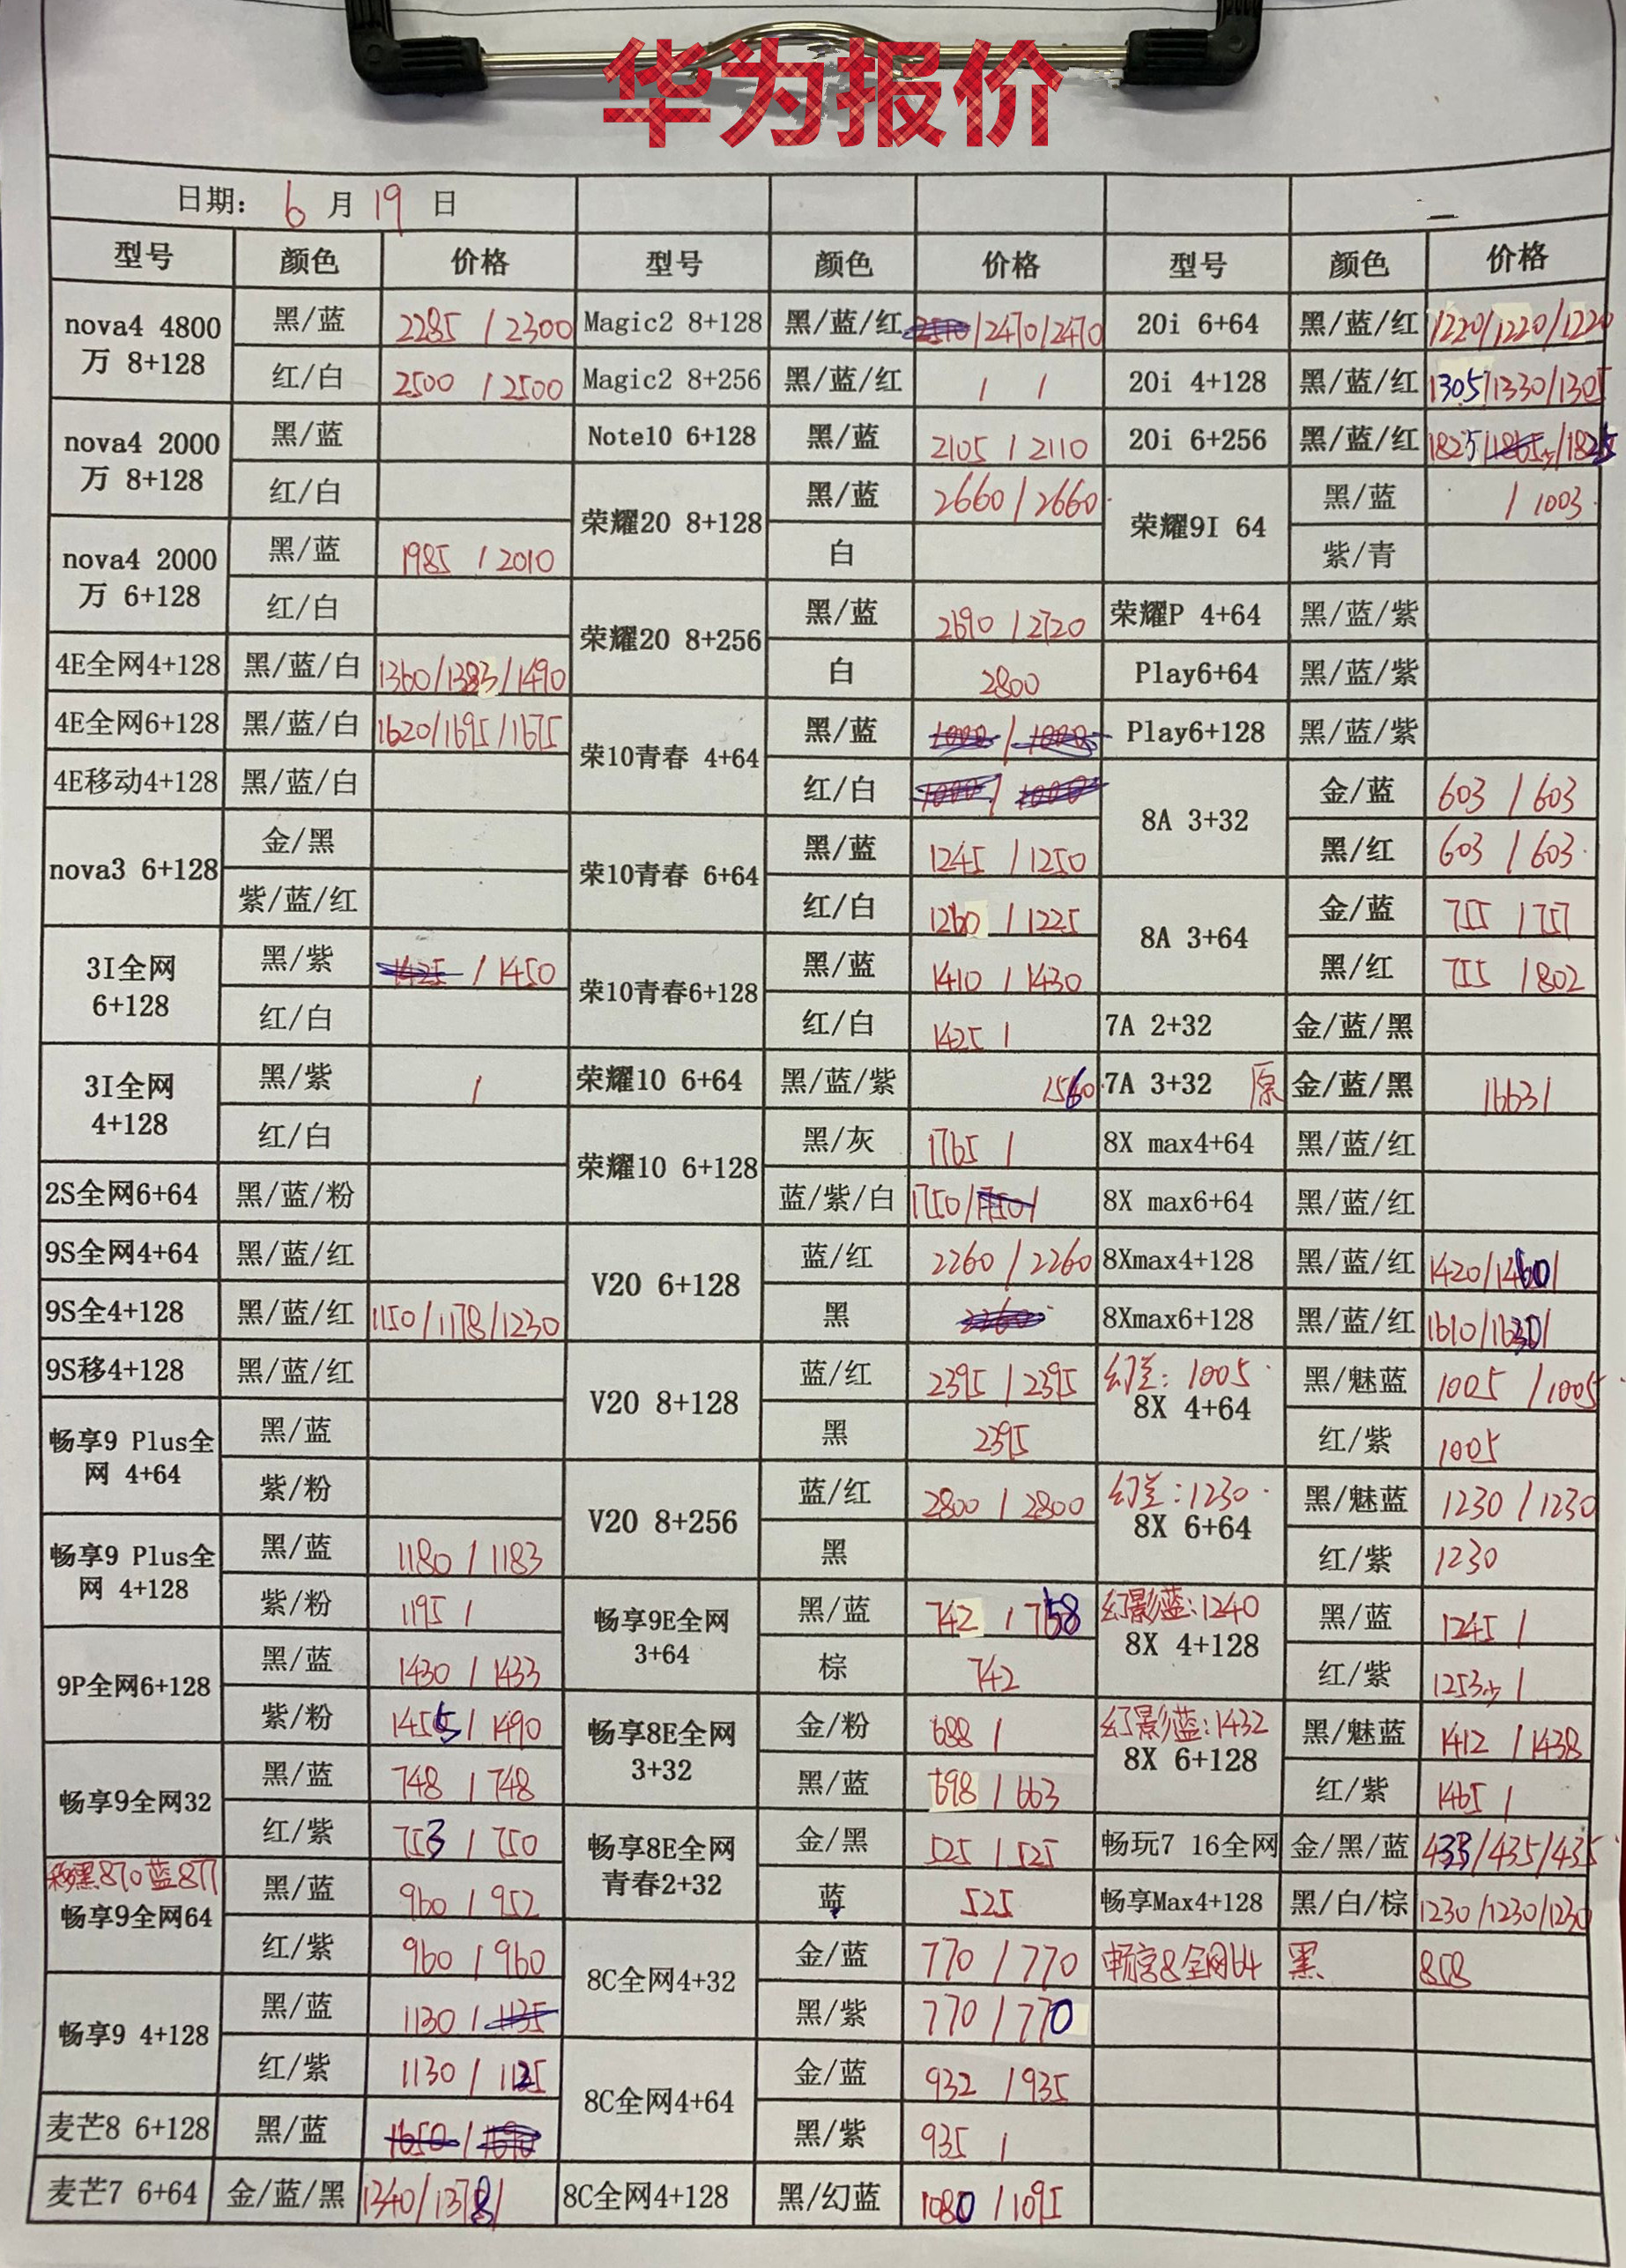 华为报价
日期： 6 月 19 日
型号 颜色 价格 型号 颜色 价格 型号 颜色 价格
nova4 4800万 8+128 黑/蓝 2285 / 2300 Magic2 8+128 黑/蓝/红 /2470/2470 20i 6+64 黑/蓝/红 1220/1220/1220
红/白 2500 / 2500 Magic2 8+256 黑/蓝/红 / / 20i 4+128 黑/蓝/红 1305/1330/1305
nova4 2000万 8+128 黑/蓝 Note10 6+128 黑/蓝 2105 / 2110 20i 6+256 黑/蓝/红 1825/1865少/1825
红/白 荣耀20 8+128 黑/蓝 2660 / 2660 荣耀9I 64 黑/蓝 / 1003
nova4 2000万 6+128 黑/蓝 1985 / 2010 白 紫/青
红/白 荣耀20 8+256 黑/蓝 2690 / 2720 荣耀P 4+64 黑/蓝/紫
4E全网4+128 黑/蓝/白 1360/1383/1490 白 2800 Play6+64 黑/蓝/紫
4E全网6+128 黑/蓝/白 1620/1695/1675 荣10青春 4+64 黑/蓝 / Play6+128 黑/蓝/紫
4E移动4+128 黑/蓝/白 红/白 / 8A 3+32 金/蓝 603 / 603
nova3 6+128 金/黑 荣10青春 6+64 黑/蓝 1245 / 1250 黑/红 603 / 603
紫/蓝/红 红/白 1260 / 1225 8A 3+64 金/蓝 755 / 757
3I全网 6+128 黑/紫 1425 / 1450 荣10青春6+128 黑/蓝 1410 / 1430 黑/红 755 / 802
红/白 红/白 1425 / 7A 2+32 金/蓝/黑
3I全网 4+128 黑/紫 / 荣耀10 6+64 黑/蓝/紫 1560 7A 3+32 原 金/蓝/黑 /663/
红/白 荣耀10 6+128 黑/灰 1765 / 8X max4+64 黑/蓝/红
2S全网6+64 黑/蓝/粉 蓝/紫/白 1750/1750/ 8X max6+64 黑/蓝/红
9S全网4+64 黑/蓝/红 V20 6+128 蓝/红 2260 / 2260 8Xmax4+128 黑/蓝/红 1420/1460/
9S全4+128 黑/蓝/红 1150/1178/1230 黑 2260 8Xmax6+128 黑/蓝/红 1610/1630/
9S移4+128 黑/蓝/红 V20 8+128 蓝/红 2395 / 2395 幻兰：1005 8X 4+64 黑/魅蓝 1005 / 1005
畅享9 Plus全网 4+64 黑/蓝 黑 2395 红/紫 1005
紫/粉 V20 8+256 蓝/红 2800 / 2800 幻兰：1230 8X 6+64 黑/魅蓝 1230 / 1230
畅享9 Plus全网 4+128 黑/蓝 1180 / 1183 黑 红/紫 1230
紫/粉 1195 / 畅享9E全网 3+64 黑/蓝 742 / 758 幻影蓝：1240 8X 4+128 黑/蓝 1245 /
9P全网6+128 黑/蓝 1430 / 1433 棕 742 红/紫 1253少 /
紫/粉 1455 / 1490 畅享8E全网 3+32 金/粉 688 / 幻影蓝：1432 8X 6+128 黑/魅蓝 1412 / 1438
畅享9全网32 黑/蓝 748 / 748 黑/蓝 698 / 663 红/紫 1465 /
红/紫 753 / 750 畅享8E全网青春2+32 金/黑 525 / 525 畅玩7 16全网 金/黑/蓝 433/435/435
移黑870蓝877 畅享9全网64 黑/蓝 960 / 952 蓝 525 畅享Max4+128 黑/白/棕 1230/1230/1230
红/紫 960 / 960 8C全网4+32 金/蓝 770 / 770 畅享8全网64 黑 858
畅享9 4+128 黑/蓝 1130 / 1135 黑/紫 770 / 770
红/紫 1130 / 1125 8C全网4+64 金/蓝 932 / 935
麦芒8 6+128 黑/蓝 1650 / 黑/紫 935 /
麦芒7 6+64 金/蓝/黑 1340/1378/ 8C全网4+128 黑/幻蓝 1080 / 1095